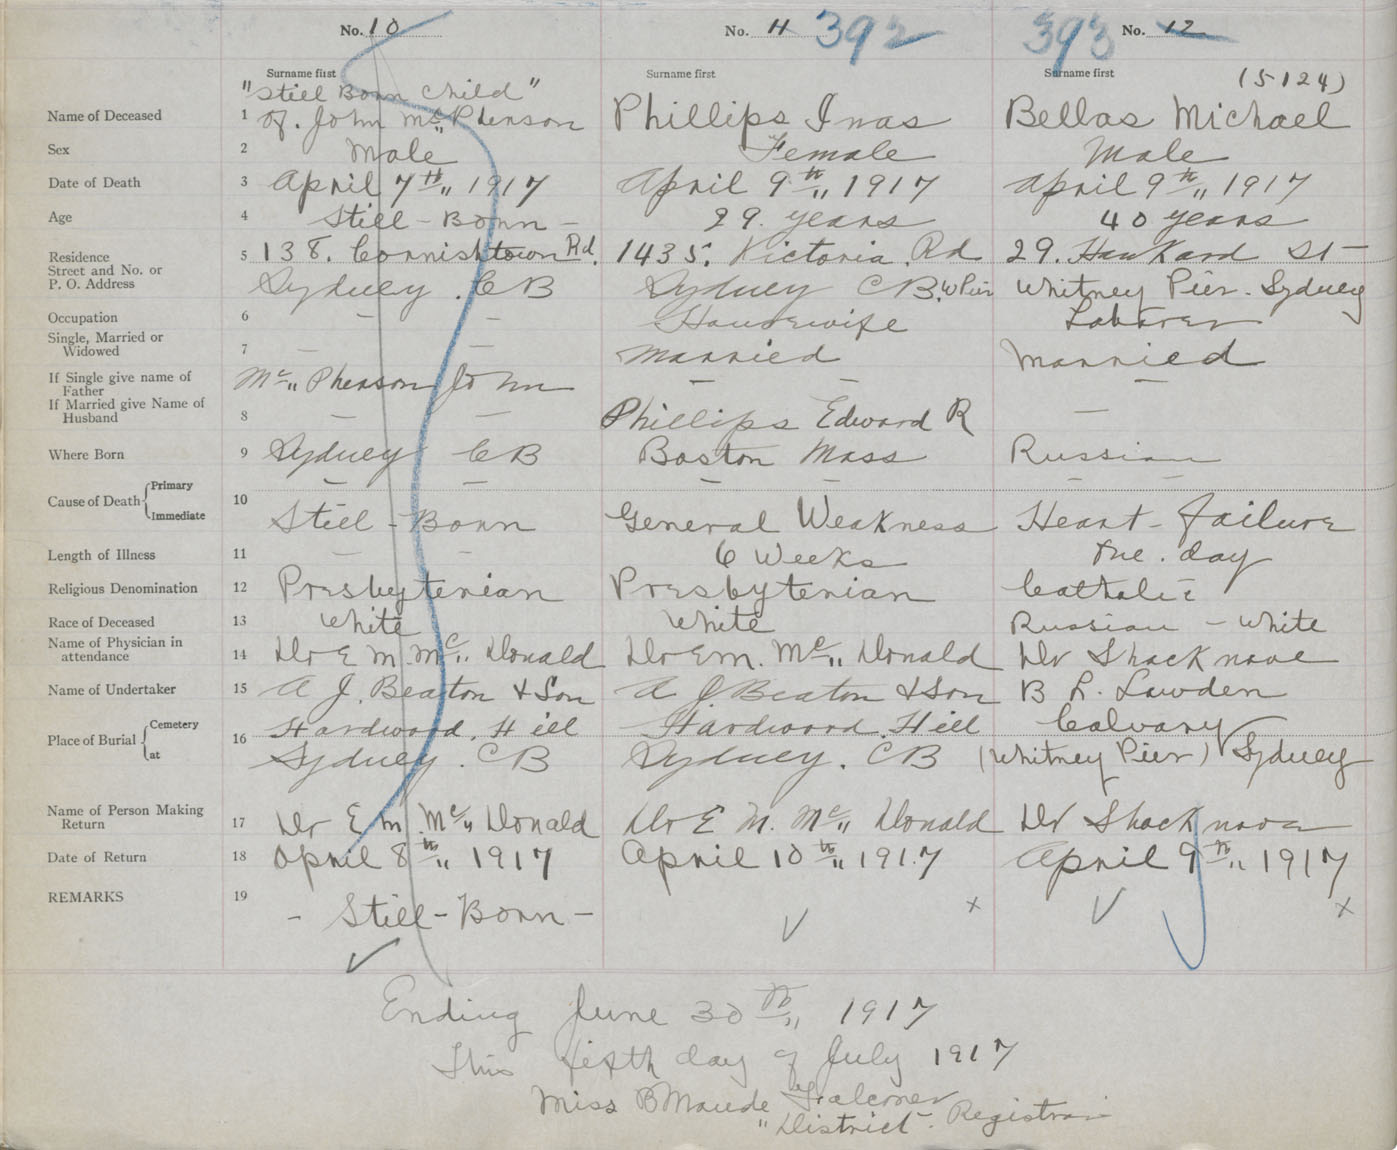 No. 10 No. 11 392 393 No. 12
Surname first Surname first Surname first (5124)
"Still Born Child"
Name of Deceased 1 of. John Mc„Pherson Phillips Inas Bellas Michael
Sex 2 Male Female Male
Date of Death 3 April 7th„ 1917 April 9th„ 1917 April 9th„ 1917
Age 4 Still-Born - 29. years 40 years
Residence 5 138. Cornishtown Rd. 1435. Victoria Rd 29. Hankard St -
Street and No. or
P. O. Address Sydney. CB Sydney CB. W Pier Whitney Pier. Sydney
Occupation 6 - - Housewife Laborer
Single, Married or
Widowed 7 - - Married Married
If Single give name of
Father Mc„ Pherson John - - -
If Married give Name of
Husband 8 - - Phillips Edward R -
Where Born 9 Sydney CB Boston Mass Russian
Cause of Death Primary - - - - - -
Immediate 10 Still-Born General Weakness Heart-failure
Length of Illness 11 - - 6 Weeks One. day
Religious Denomination 12 Presbyterian Presbyterian Catholic
Race of Deceased 13 White White Russian - White
Name of Physician in
attendance 14 Dr E M. Mc„ Donald Dr E M. Mc„ Donald Dr Shacknove
Name of Undertaker 15 A J. Beaton & Son A J Beaton & Son B L. Lowden
Place of Burial Cemetery 16 Hardwood. Hill Hardwood. Hill Calvary
at Sydney. CB Sydney. CB (Whitney Pier) Sydney
Name of Person Making
Return 17 Dr E M. Mc„ Donald Dr E M. Mc„ Donald Dr Shacknove
Date of Return 18 April 8th„ 1917 April 10th„ 1917 April 9th„ 1917
REMARKS 19 - Still-Born - x x
Ending June 30th„ 1917
This sixth day of July 1917
Miss B Maude Falconer
"District- Registrar